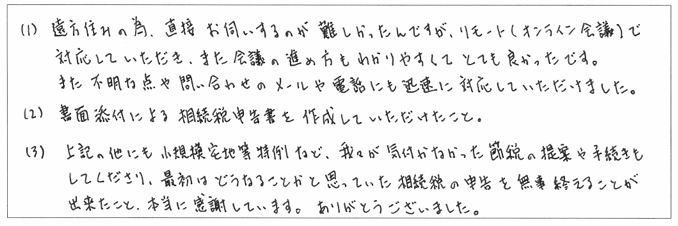 (1) 遠方住みの為、直接お伺いするのが難しかったんですが、リモート(オンライン会議)で
対応していただき、また会議の進め方もわかりやすくてとても良かったです。
また不明な点や問い合わせのメールや電話にも迅速に対応していただけました。
(2) 書面添付による相続税申告書を作成していただけたこと。
(3) 上記の他にも小規模宅地等特例など、我々が気付かなかった節税の提案や手続きも
してくださり、最初はどうなることかと思っていた相続税の申告を無事終えることが
出来たこと、本当に感謝しています。ありがとうございました。